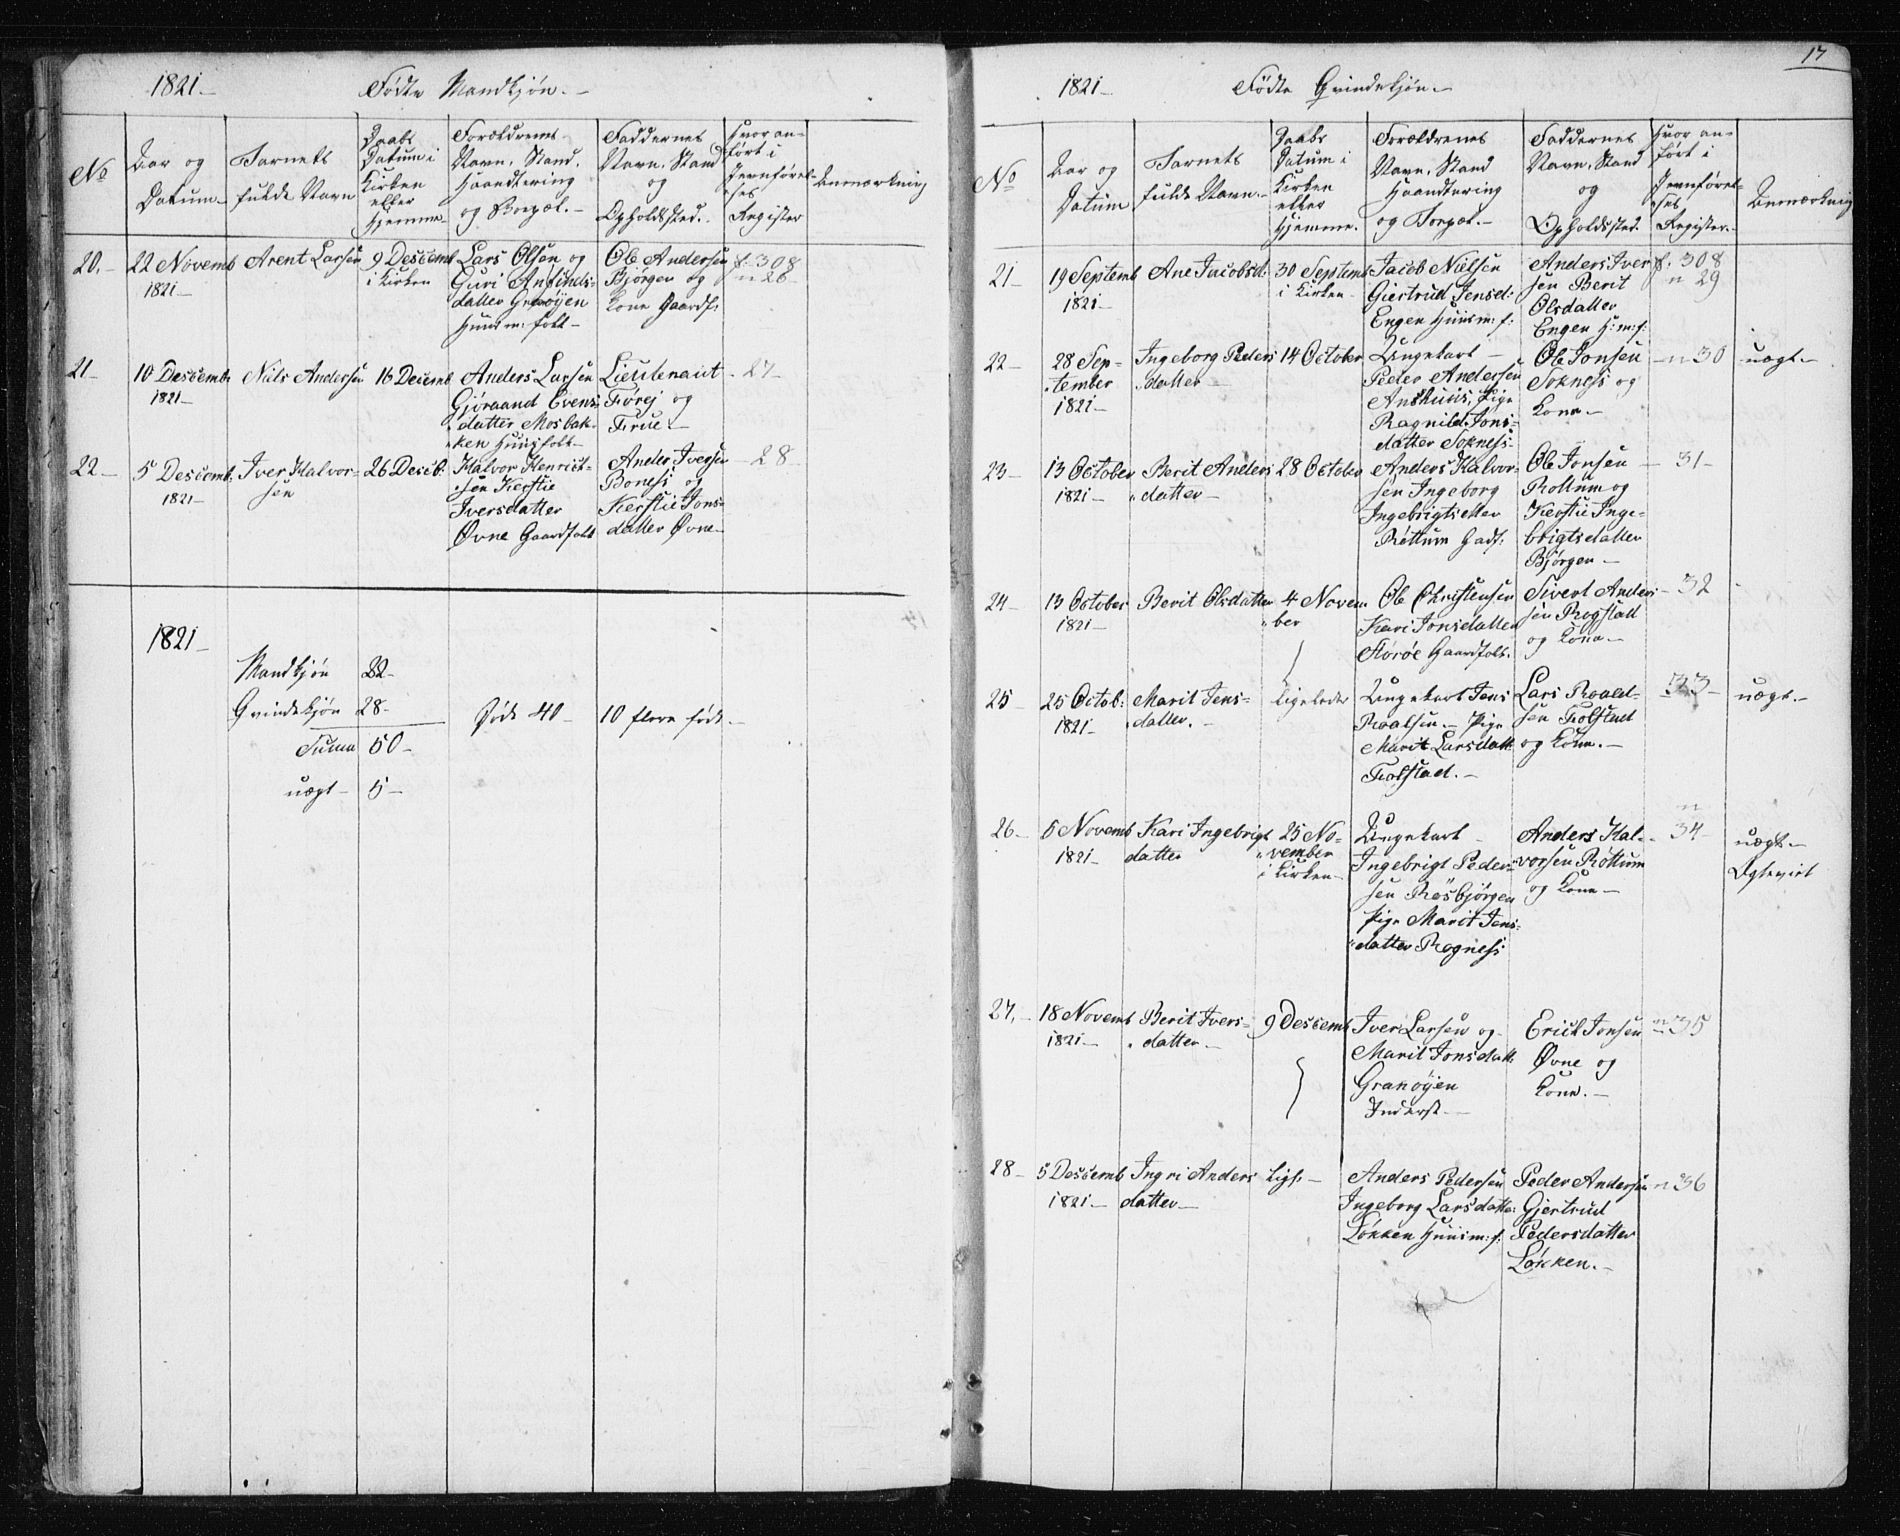 1821 –
Fødte Mandkjøn. –
No
Aar og
Datum –
Barnets
fulde Navn
Daabs
Datum i
Kirken
eller
Hjemme –
Forældrenes
Navn, Stand,
Haandtering
og Boepæl. –
Faddernes
Navn, Stand
og
Opholdssted. –
Hvor an-
ført i
Jevnførel-
ses
Register
Anmærkning
20. –
22 Novemb
1821 –
Arent Larsen
9 Descemb
i Kirken
Lars Olsen og
Guri Arnthids-
datter Granøyen
Huusm: folk –
Ole Andersen
Bjørgen og
Kone Gaardf:
f. 308
n 26 –
21 –
10 Descemb:
1821 –
Niels Andersen
16 Desemb
Anders Larsen
Gjøraand Evens-
datter Mosbak-
ken Huusfolk –
Lieutenant
Førej og
Frue –
– 27 –
22 –
5 Descemb:
1821 –
Iver Halvor-
sen
26 Descb:
Halvor Henrict-
sen Kerstie
Iversdatter
Øvne Gaardfolk
Ander Iversen
Boness og
Kerstie Jons-
datter Øvne –
– 28 –
1821 –
Mandkjøn 22 –
Qvindekjøn 28 –
Suma 50 –
uægt – 5 –
Døde 40 –
10 flere fødte. –
17
1821 –
Fødte Qvindekjøn. –
No
Aar og
Datum
Barnets
fulde Navn. –
Daabs
Datum i
Kirken
eller
Hjemme.
Forældrenes
Navn, Stand
Haandtering
og Boepæl. –
Faddernes
Navn, Stand
og
Opholdssted.
Hvor an-
ført i
Jevnførel-
ses
Register. –
Anmærkning
21 –
19 Septemb
1821 –
Ane Jacobsd:
30 Septemb
i Kirken –
Jacob Nielsen
Giertrud Jensd:
Engen Huusm: f:
Anders Iver
sen Berit
Olsdatter
Engen H: m: f:
f. 308
n 29
22 –
28 Sep-
tember
1821 –
Ingeborg Peders
datter –
14 October
Ungekarl –
Peder Andersen
Anshuus, Pige
Ragnild Jons-
datter Sokness
Ole Jonsen
Sokness og
Kone –
– n 30
uægt –
23 –
13 October
1821 –
Berit Anders
datter –
28 October
Anders Halvor-
sen Ingeborg
Ingebrigtsdtter
Røttum Gadf:
Ole Jonsen
Rottum og
Kerstie Inge-
brigtsdatter
Bjørgen –
– 31 –
24 –
13 October
1821 –
Berit Olsdatter
4 Novem
ber
Ole Christensen
Kari Jonsdatter
Storøe Gaardfolk.
Sivert Anders
sen Rogstad
og Kone –
– 32
25 –
25 Octob:
1821 –
Marit Jens-
datter. –
Ligeledes
Ungekarl Jens
Roalsen – Pige
Marit Larsdatt:
Folstad. –
Lars Roald-
sen Folstad
og Kone. –
33 –
uægt. –
26 –
6 Novemb
1821 –
Kari Ingebrigt
datter
25 No-
vember
i Kirken –
Ungekarl –
Ingebrigt Peder-
sen Røsbjørgen
Pige Marit Jens-
datter Rogness
Anders Hal-
vorsen Røttum
og Kone –
n
34 –
uægt –
Ægteviet
27. –
18 Novemb
1821 –
Berit Ivers-
datter –
9 Descemb
Iver Larsen og
Marit Jonsdatt:
Granøyen
Inderst. –
Erick Jonsen
Øvne og
Kone. –
n 35
28 –
5 Descemb
1821 –
Ingri Anders
datter –
Lige –
Anders Pedersen
Ingeborg Larsdatte:
Løkken Huusm: f:
Peder Andersen
Gjertrud
Pedersdatter
Løkken. –
n 36